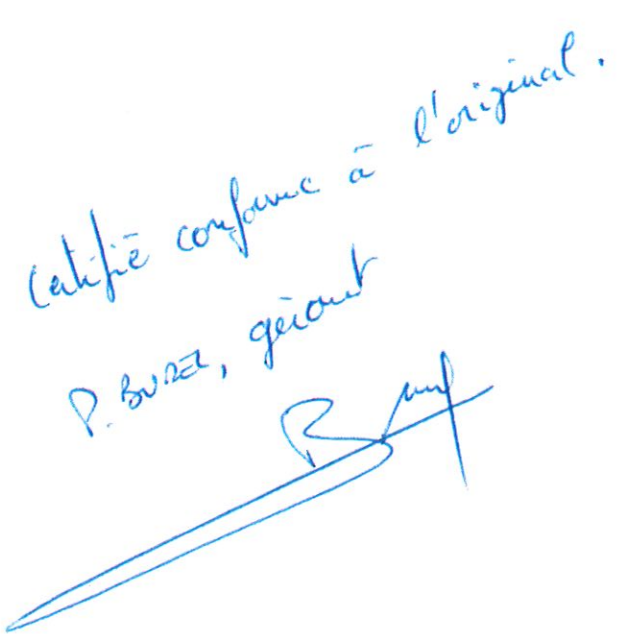 Certifié conforme à l'original.
P. BUREL, gérant